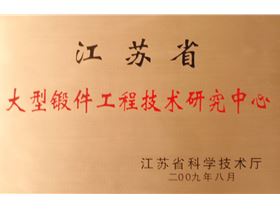 江苏省
大型锻件工程技术研究中心
江苏省科学技术厅
二00九年八月